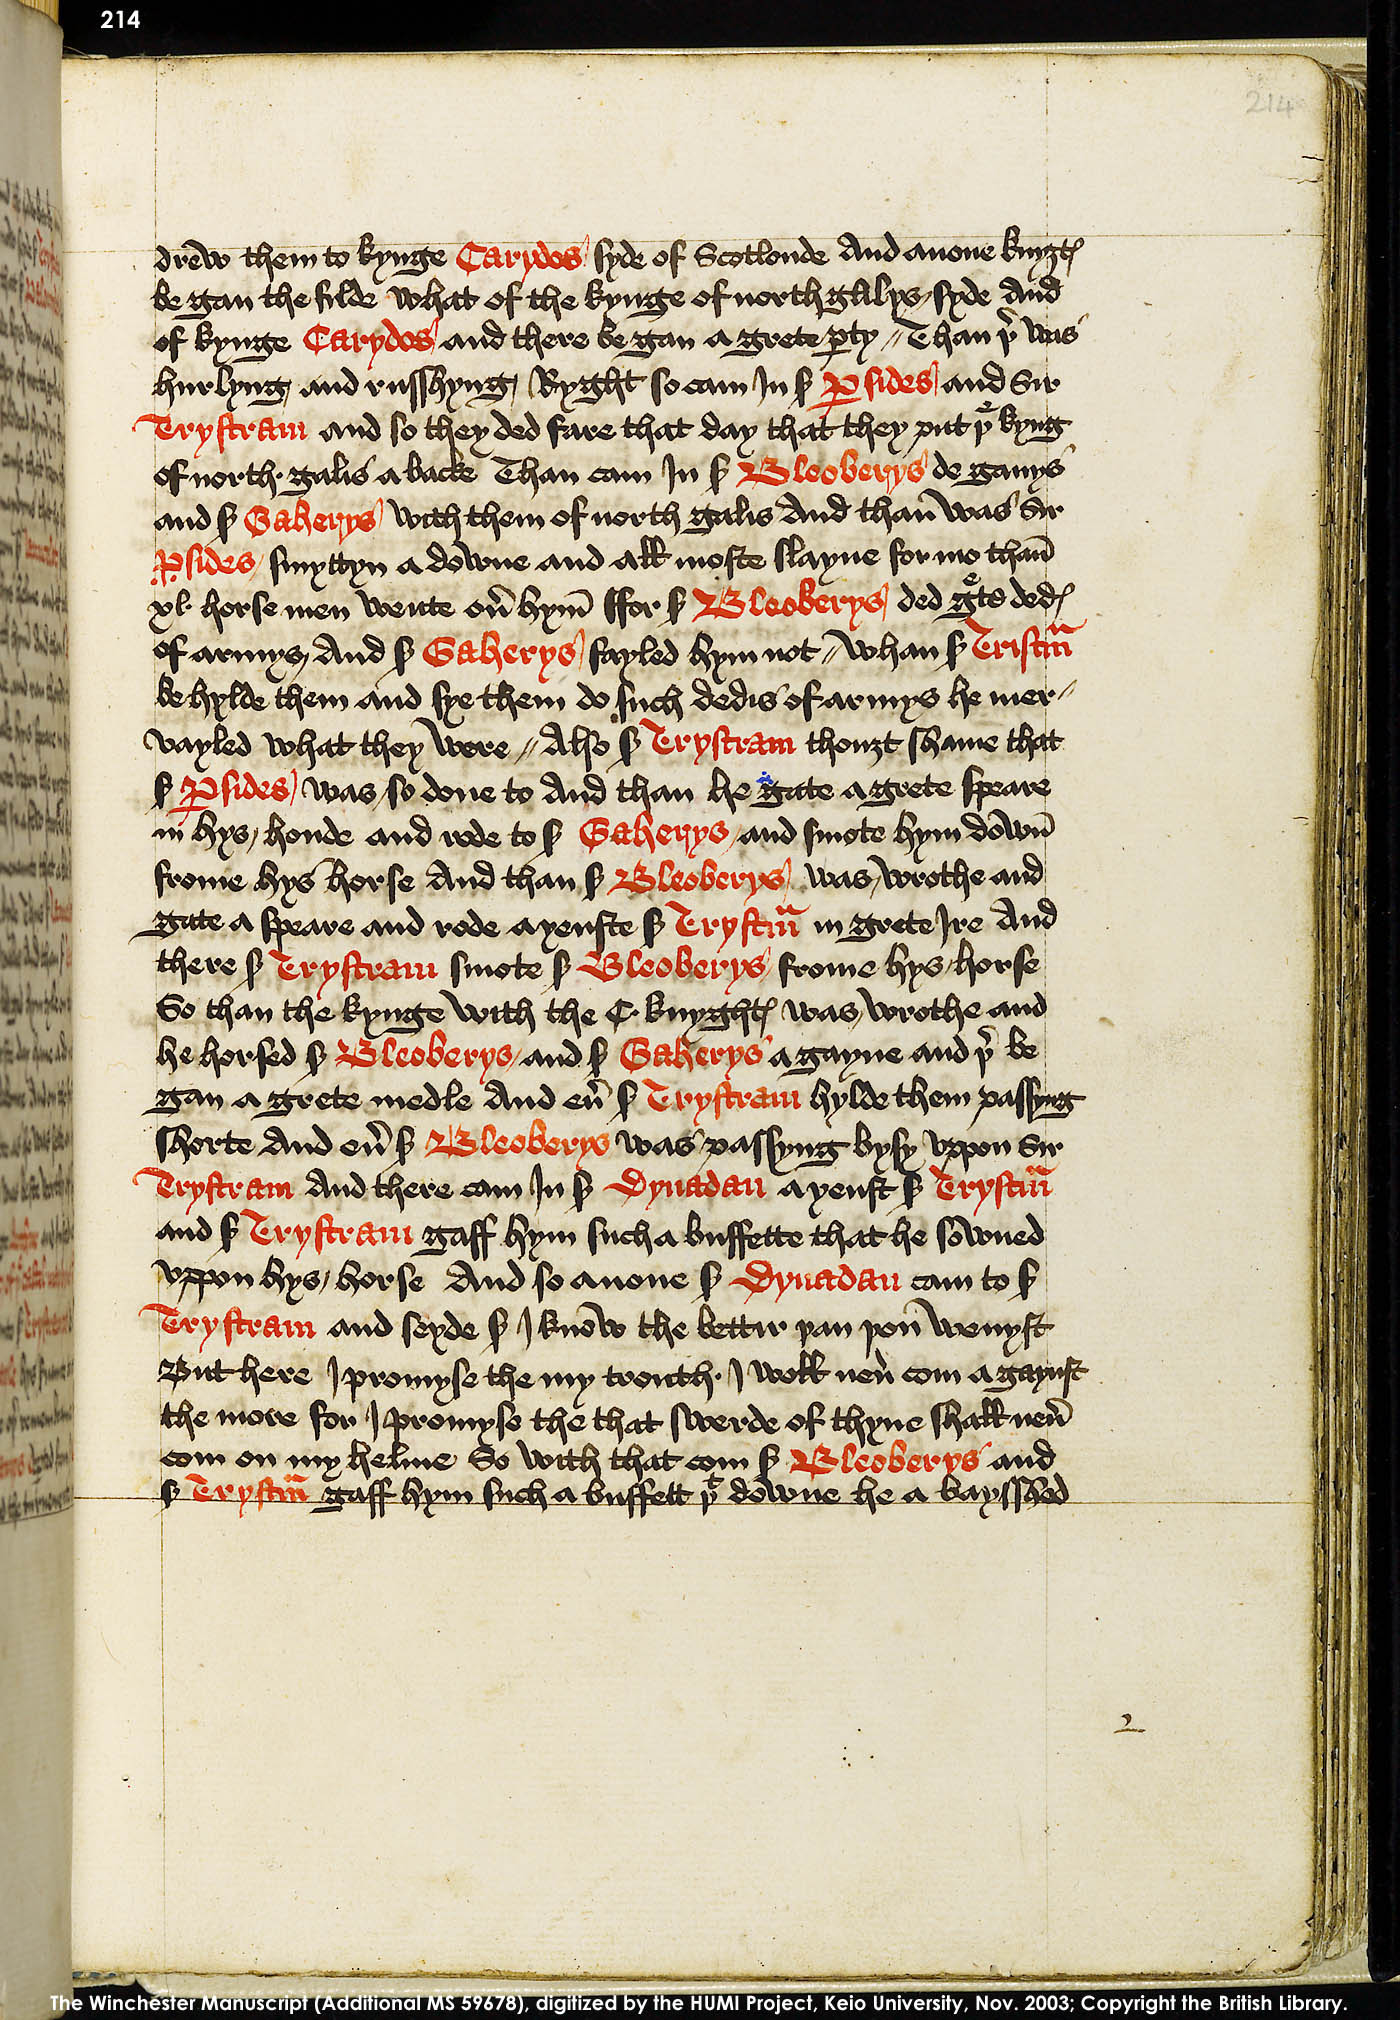 214
214
drew them to kynge Carydos syde of Scotlonde And anone knyȝtꝭ
be gan the filde what of the kynge of north galys syde And
of kynge Carydos and there be gan a grete ꝑty // Than þʳ was
hurlyng and russhyng Ryght so cam In sʳ ꝑsides and Sir
Trystram and so they ded fare that day that they put þᵉ kyng
of north galis a backe Than cam In sʳ Bleoberys de ganys
and sʳ Gaherys with them of north galis And than̄ was Sir
ꝑsides smyttyn a downe and all moste slayne for mo than̄
xl horse men wente on̄ hym̄ ffor sʳ Bleoberys ded gᵉte dedꝭ
of armys And sʳ Gaherys fayled hym not // Whan sʳ Tristm̄
be hylde them and sye them do such dedis of armys he mer //
vayled what they were // Also sʳ Trystram thouȝt shame that
sʳ ꝑsides was so done to And than he gate a grete speare
in hys honde and rode to sʳ Gaherys and smote hym down̄
frome hys horse And than sʳ Bleoberys was wrothe and
gate a speare and rode ayenste sʳ Trystm̄ in grete Ire And
there sʳ Trystram smote sʳ Bleoberys frome hys horse
So than the kynge with the C knyghtꝭ was wrothe and
he horsed sʳ Bleoberys and sʳ Gaherys a gayne and þʳ be
gan a grete medle And eu̾ sʳ Trystram hylde them passyng
shorte And eu̾ sʳ Bleoberys was passyng bysy vppon Sir
Trystram And there cam In sʳ Dynadan ayenst sʳ Trystm̄
and sʳ Trystram gaff hym such a buffette that he sowned
vppon hys horse And so anone sʳ Dynadan cam to sʳ
Trystram and seyde sʳ I know the bettir þan þou̅ wenyst
But here I promyse the my trouth I woll neu̾ com a gaynst
the more for I promyse the that swerde of thyne shall neu̾
com on my helme So with that com sʳ Bleoberys and
sʳ Trystm̄ gaff hym such a buffett þᵗ downe he a baysshed
2
The Winchester Manuscript (Additional MS 59678), digitized by the HUMI Project, Keio University, Nov. 2003; Copyright the British Library.